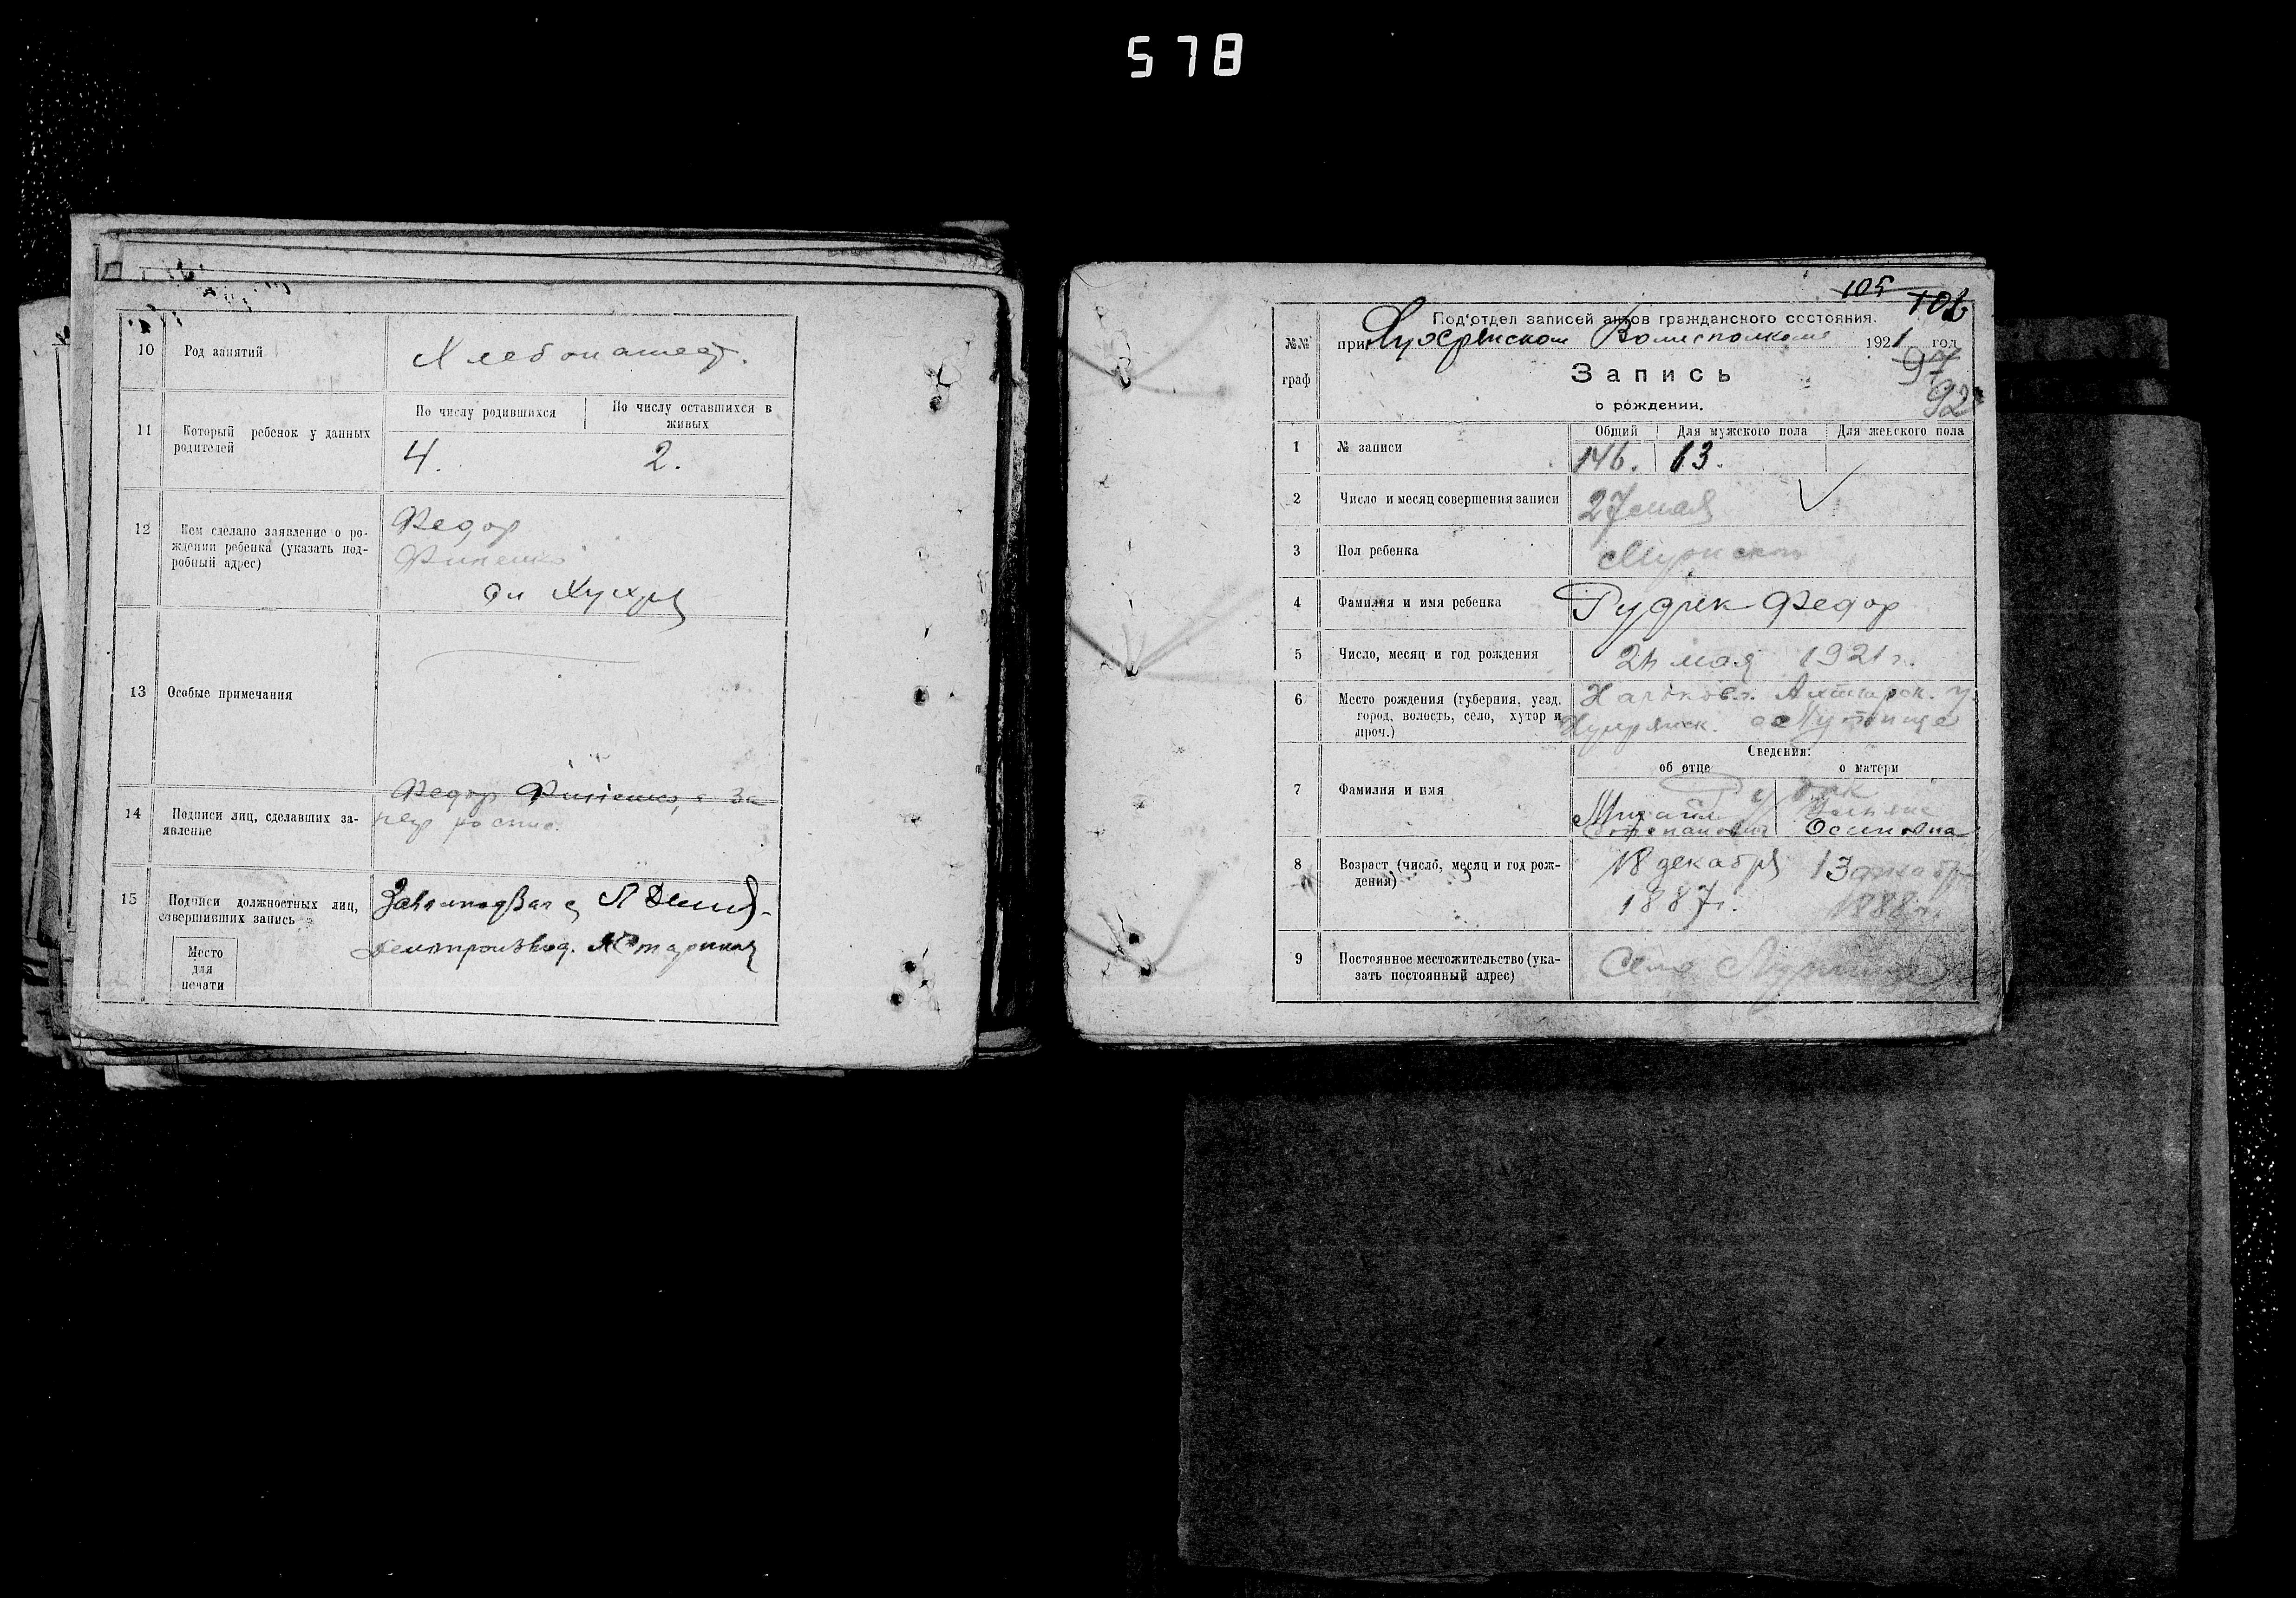 578
10 Род занятий
Хлебопашест.
11 Который ребенок у данных родителей
По числу родившихся
По числу оставшихся в живых
4.
2.
12 Кем сделано заявление о ро-
ждении ребенка (указать под-
робный адрес)
Федор
сл Хухря
13 Особые примечания
14 Подписи лиц, сделавших за-
явление
Федор
15 Подписи должностных лиц,
совершивших запись
Делопроизвод.
Место
для
печати
105
106
Подотдел записей актов гражданского состояния.
№№
граф
при Хухрянском Волисполкоме 1921 год
97
92
Запись
о рождении.
1 № записи
Общий
Для мужского пола
Для женского пола
146. 13.
2 Число и месяц совершения записи
27 мая
3 Пол ребенка
Мужской
4 Фамилия и имя ребенка
Рудик Федор
5 Число, месяц и год рождения
мая 1921 г.
6 Место рождения (губерния, уезд,
город, волость, село, хутор и
проч.)
Харьков. г. Ахтырск. у.
Хухрянск.
Сведения:
об отце
о матери
7 Фамилия и имя
Рудик
Михаил
Степанович
Ульяна
Осиповна
8 Возраст (число, месяц и год рож-
дения)
18 декабря
1887 г.
13
1888 г.
9 Постоянное местожительство (ука-
зать постоянный адрес)
Село